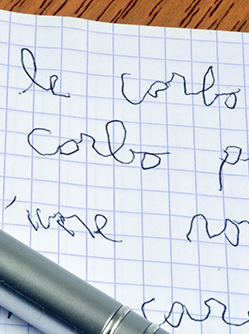 le corbo
corbo p
'ivre no
car